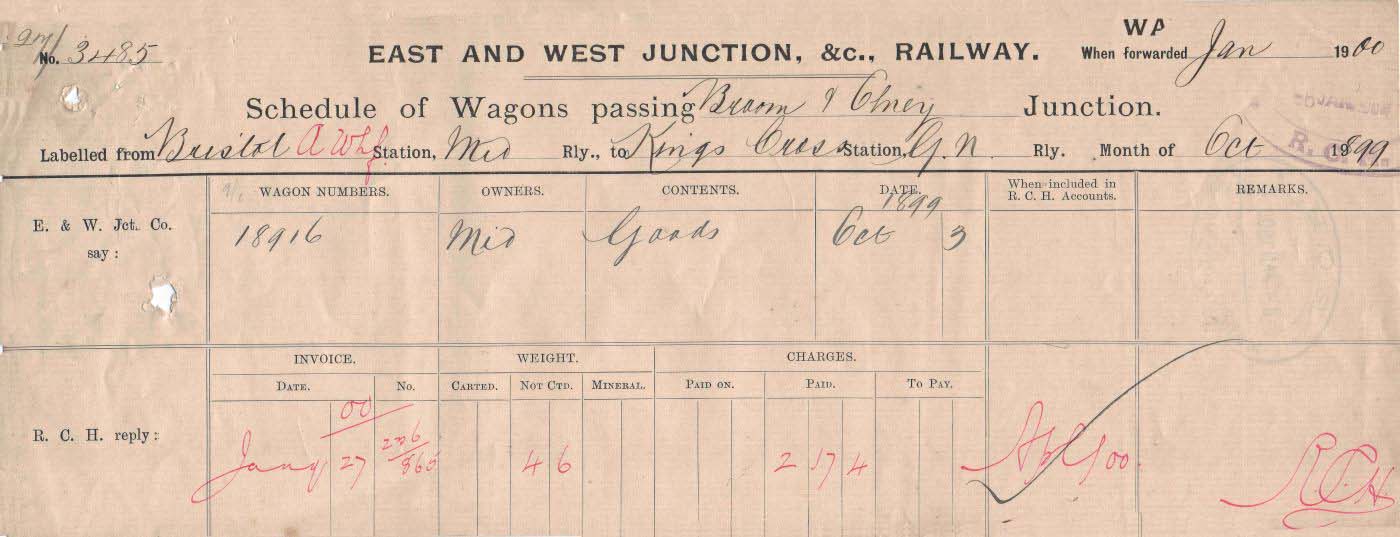 27/
No. 3485
EAST AND WEST JUNCTION, &c., RAILWAY.
WA
When forwarded Jan 1900
Schedule of Wagons passing Broom & Olney Junction.
Labelled from Bristol A Whf Station, Mid Rly., to Kings Cross Station, G.N. Rly. Month of Oct 1899
R. C.
WAGON NUMBERS. OWNERS. CONTENTS. DATE. When included in R. C. H. Accounts. REMARKS.
1899
E. & W. Jct. Co. say: 18916 Mid Goods Oct 3
INVOICE. WEIGHT. CHARGES.
DATE. No. CARTED. NOT CTD. MINERAL. PAID ON. PAID. TO PAY.
00
R. C. H. reply: Jany 27 4 6 2 17 4 Apl 00. R.C.H